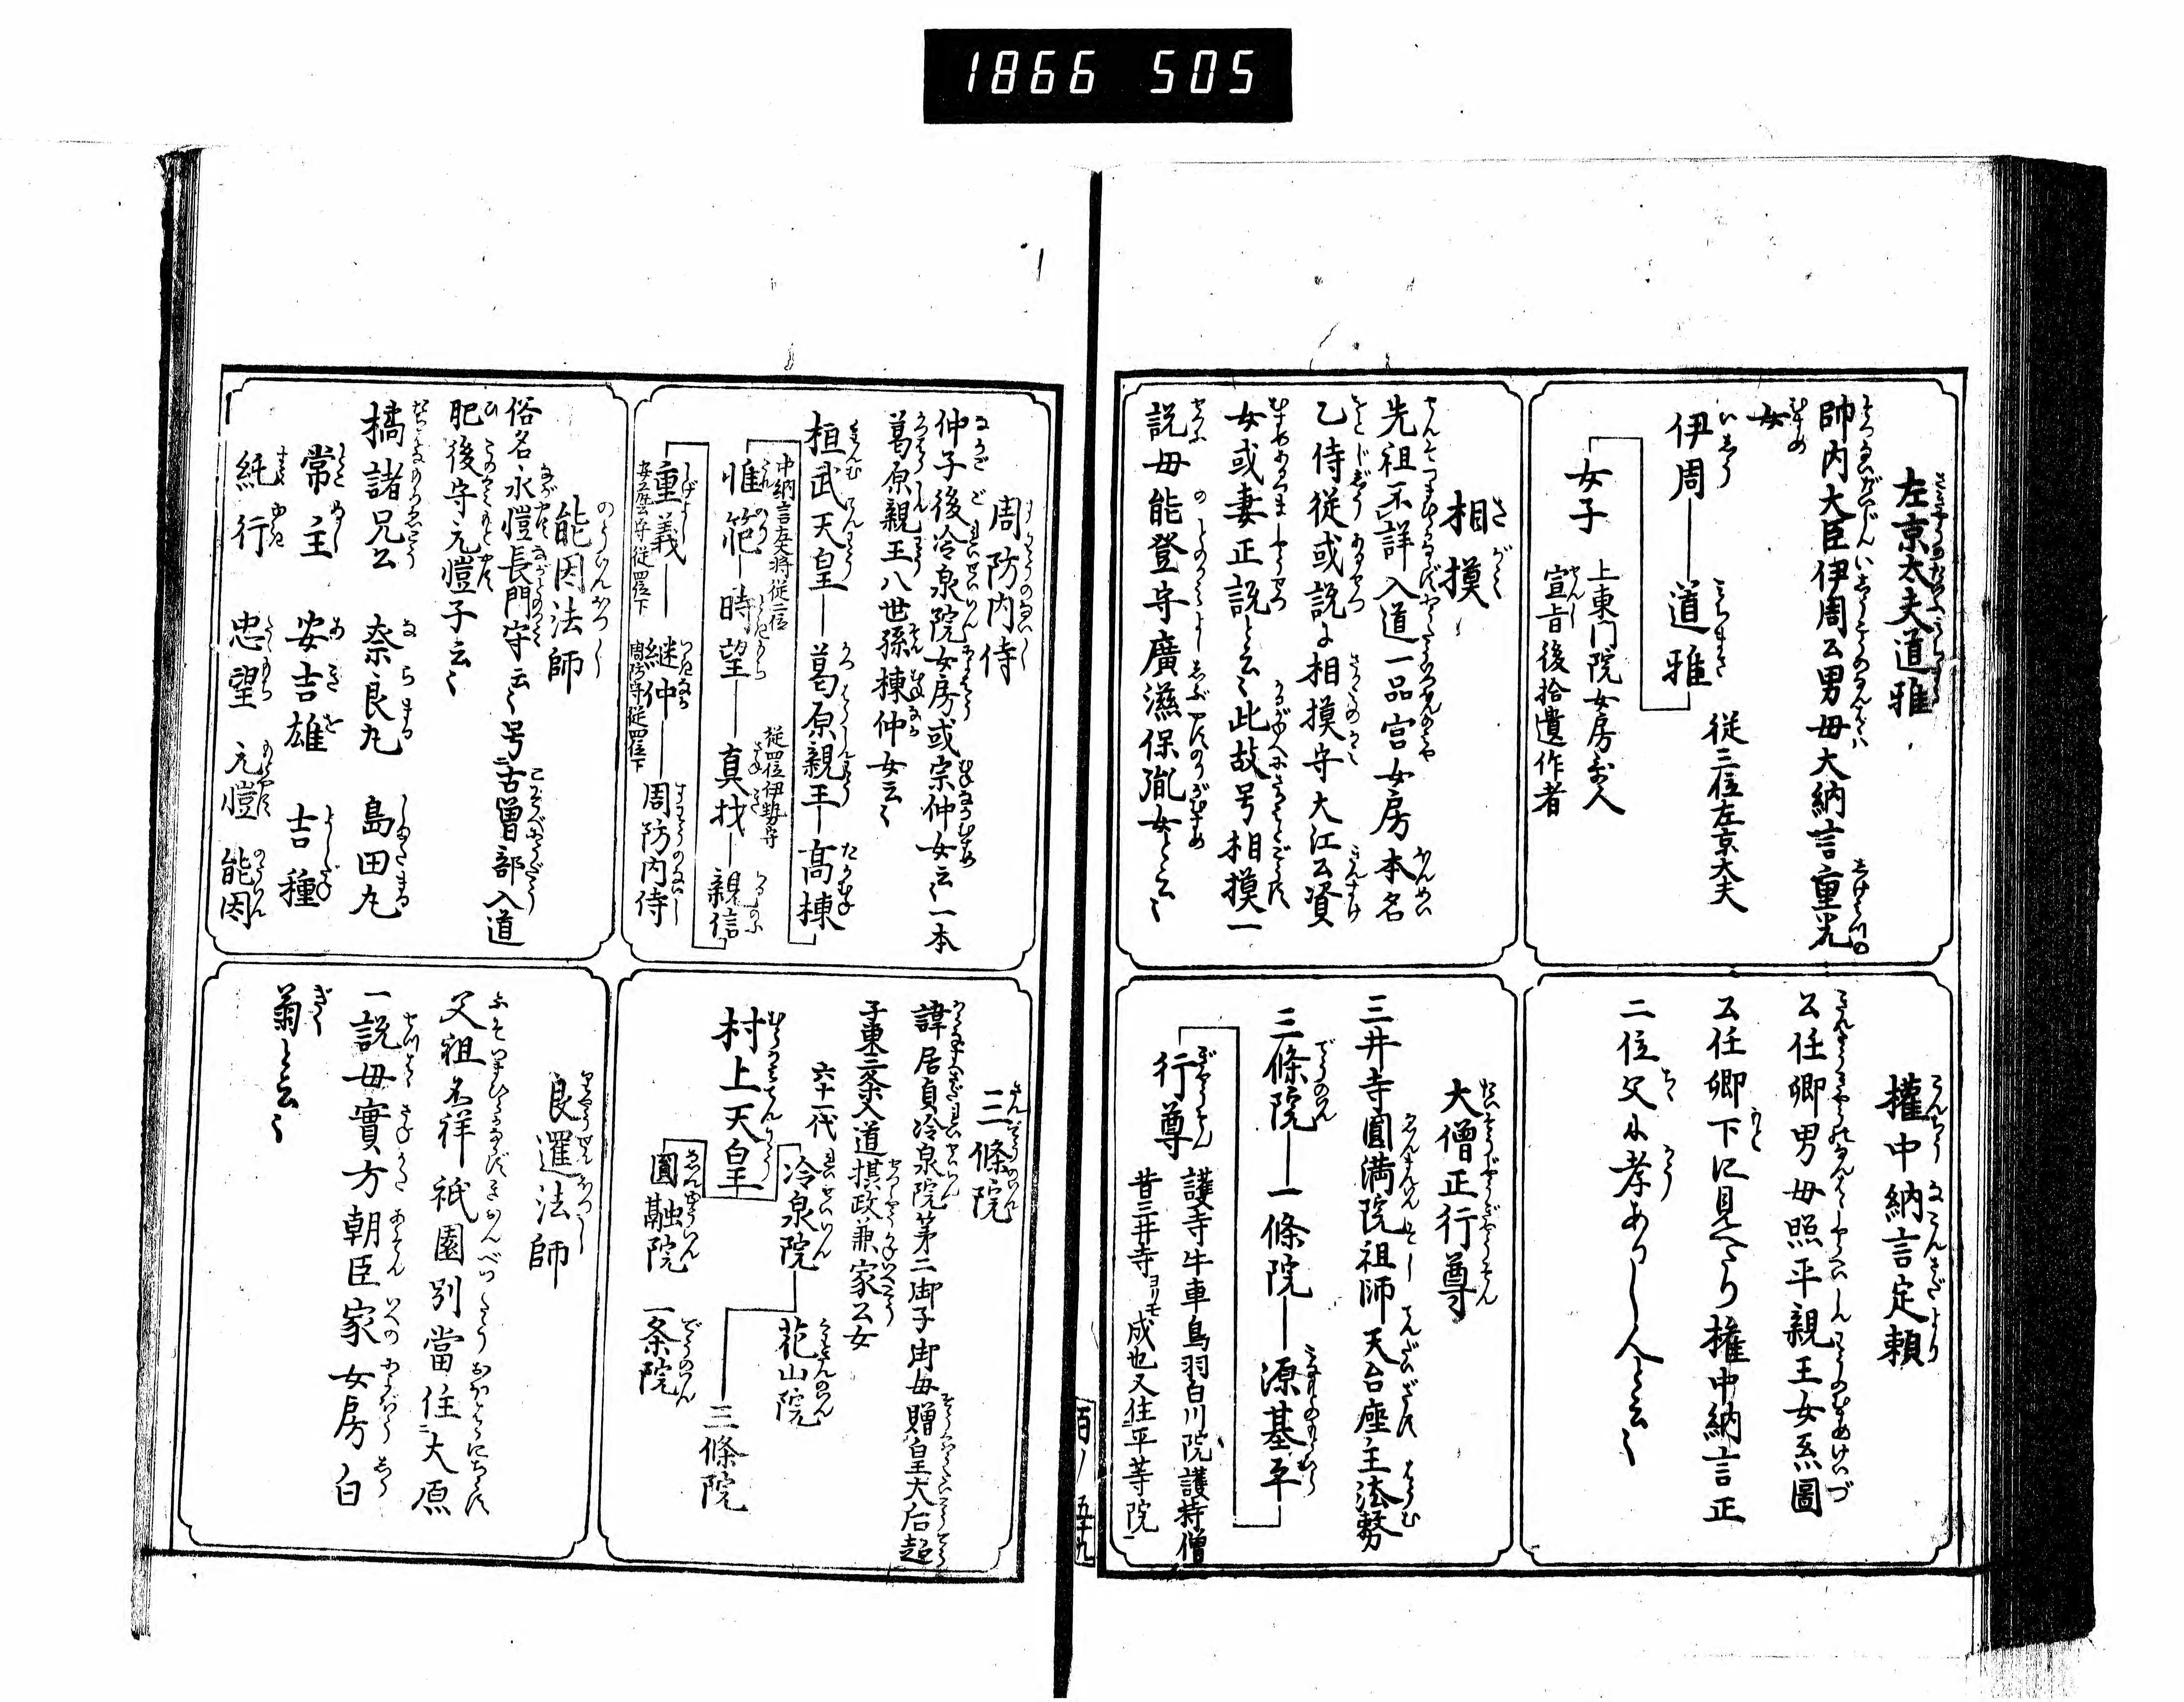 1866 505
左京太夫道雅
帥内大臣伊周公男母大納言重光
女
伊周―道雅 従三位左京大夫
女子 上東門院女房哥人
宣旨後拾遺作者
権中納言定頼
公任卿男母照平親王女系圖
公任卿下に見へたり権中納言正
二位父に孝ありし人と云〻
相摸
先祖不詳入道一品宮女房本名
乙侍従或説に相摸守大江公資
女或妻正説と云〻此故号相摸一
説母能登守廣滋保胤女と云〻
大僧正行尊
三井寺圓満院祖師天台座主法務
三條院―一條院―源基平
行尊 護寺牛車鳥羽白川院護持僧
昔三井寺ヨリモ成也又住平等院
百ノ 五十九
周防内侍
仲子後冷泉院女房或宗仲女云〻一本
葛原親王八世孫棟仲女云〻
桓武天皇―葛原親王―高棟
中納言左大将従二位 従四位伊勢守
惟範―時望―真材―親信
重義―継仲―周防内侍
安藝守従四位下 周防守従四位下
三條院
諱居貞冷泉院第二御子御母贈皇太后超
子東三条入道摂政兼家公女
六十二代
村上天皇 冷泉院 花山院
三條院
圓融院 一条院
能因法師
俗名永愷長門守云〻号古曽部入道
肥後守元愷子云〻
橘諸兄公 奈良丸 島田丸
常主 安吉雄 吉種
純行 忠望 元愷 能因
良暹法師
父祖不祥祇園別當住大原
一説母實方朝臣家女房白
菊と云〻